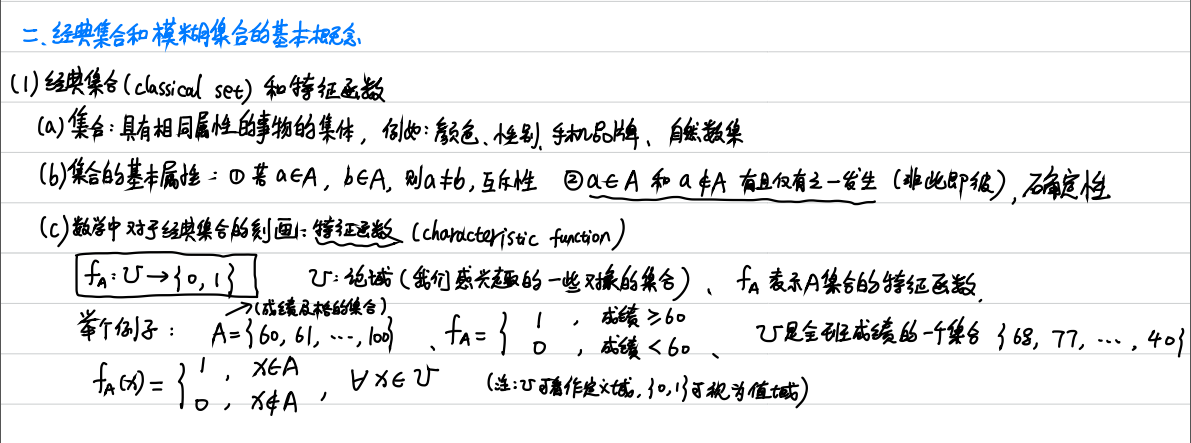 二、经典集合和模糊集合的基本概念
(1) 经典集合(classical set) 和特征函数
(a) 集合：具有相同属性的事物的集体，例如：颜色、性别、手机品牌、自然数集
(b) 集合的基本属性：① 若 a∈A, b∈A, 则a≠b, 互斥性 ② a∈A 和 a∉A 有且仅有之一发生 (非此即彼), 确定性
(c) 数学中对于经典集合的刻画：特征函数 (characteristic function)
f_A: U→{0, 1} U: 论域 (我们感兴趣的一些对象的集合)、 f_A 表示A集合的特征函数.
→(成绩及格的集合)
举个例子： A={60, 61, ..., 100}、 f_A = { 1 , 成绩≥60 0 , 成绩<60 、 U是全班成绩的一个集合 {68, 77, ..., 40}
f_A(x) = { 1 , x∈A 0 , x∉A , ∀x∈U (注：U可看作定义域, {0,1}可视为值域)